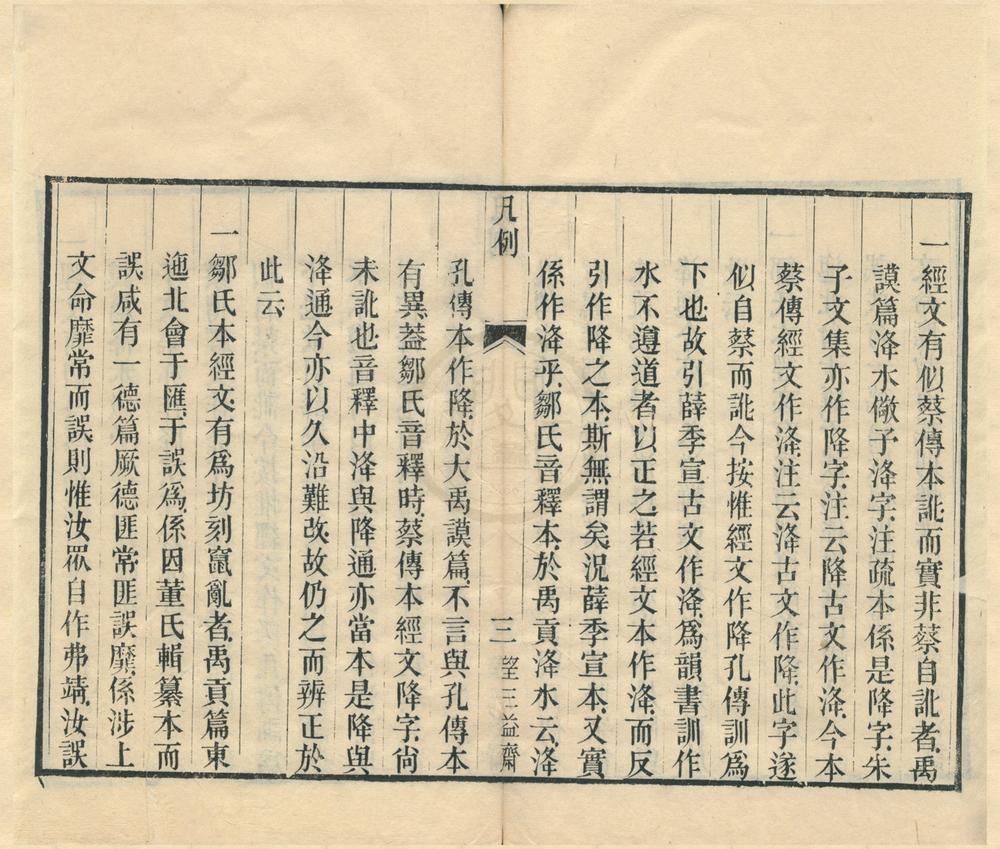 一經文有似蔡傳本訛而實非蔡自訛者禹
謨篇洚水儆予洚字注疏本係是降字朱
子文集亦作降字注云降古文作洚今本
蔡傳經文作洚注云洚古文作降此字遂
似自蔡而訛今按惟經文作降孔傳訓為
下也故引薛季宣古文作洚為韻書訓作
水不遵道者以正之若經文本作洚而反
引作降之本斯無謂矣況薛季宣本又實
係作洚乎鄒氏音釋本於禹貢洚水云洚
凡例
三
望三益齋
孔傳本作降於大禹謨篇不言與孔傳本
有異葢鄒氏音釋時蔡傳本經文降字尙
未訛也音釋中洚與降通亦當本是降與
洚通今亦以久沿難改故仍之而辨正於
此云
一鄒氏本經文有爲坊刻竄亂者禹貢篇東
迆北會于匯于誤爲係因董氏輯纂本而
誤咸有一德篇厥德匪常匪誤靡係涉上
文命靡常而誤則惟汝眾自作弗靖汝誤